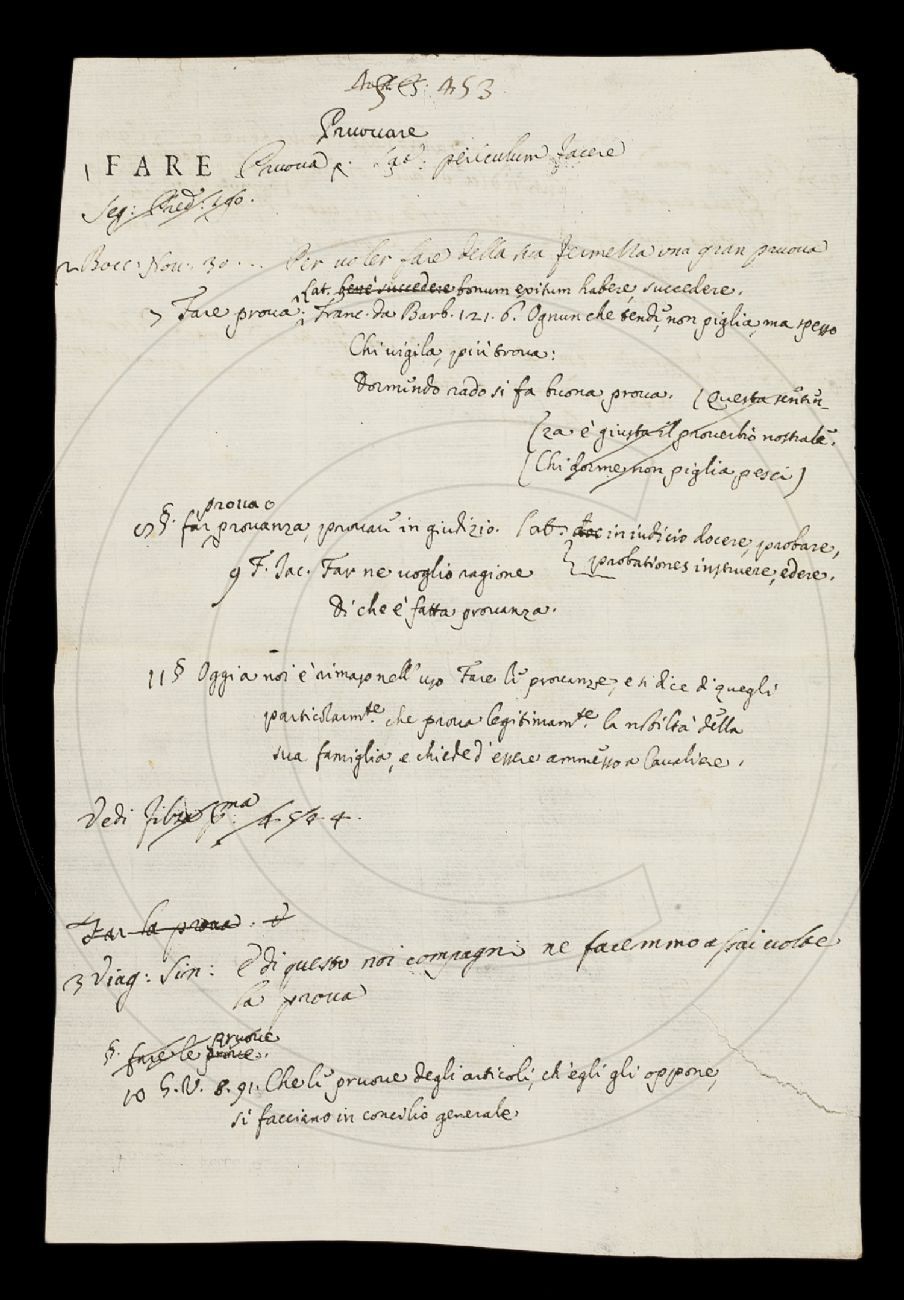 453
Pruovare
1 FARE Pruova p. Lat: periculum facere
Seg: Pred: 140.
2 Bocc: Nov: 30... Per voler fare della sua fermezza una gran pruova
Lat. bene succedere bonum exitum habere, succedere.
7 Fare prova: Franc. da Barb. 121. 6. Ognun che tende, non piglia, ma spesso
Chi vigila, più trova:
Dormendo rado si fa buona prova. (Questa senten-
(za è giusta il proverbio nostrale.
(Chi dorme non piglia pesci)
prova o
8 §. far provanza, provare in giudizio. Lat: doc in iudicio docere, probare,
probationes instruere, edere.
9 F. Jac. Far ne voglio ragione
Di che è fatta provanza.
11 § Oggi a noi è rimaso nell'uso Fare le provanze, e si dice di quegli
particolarmte. che prova legitimamte. la nobiltà della
sua famiglia, e chiede d'essere ammesso a Cavaliere.
Vedi 4544.
Far la prova.
3 Viag: Sin: E di questo noi compagni ne facemmo assai volte
la prova
pruove
§. fare le prove.
10 G. V. 8. 91. Che le pruove degli articoli, ch'egli gli oppone,
si facciano in concilio generale